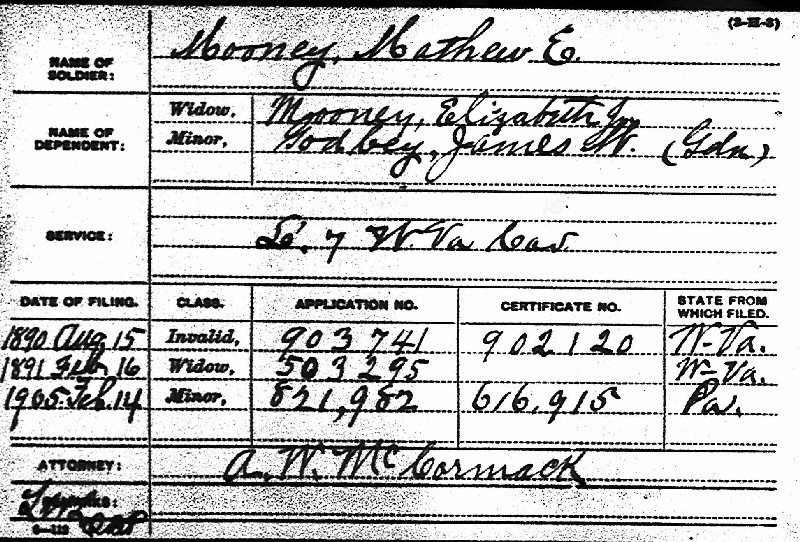 (3-III-8)
NAME OF SOLDIER: Mooney, Mathew E.
NAME OF DEPENDENT: Widow, Mooney, Elizabeth
Minor, Godbey, James W. (Gdn)
SERVICE: 7 W. Va Cav.
DATE OF FILING. CLASS. APPLICATION NO. CERTIFICATE NO. STATE FROM WHICH FILED.
1890 Aug 15 Invalid, 903741 902120 W-Va.
1891 Feb 16 Widow, 503295 W-Va.
1905. Feb. 14 Minor, 821,982 616,915 Pa.
ATTORNEY: A. W. McCormack